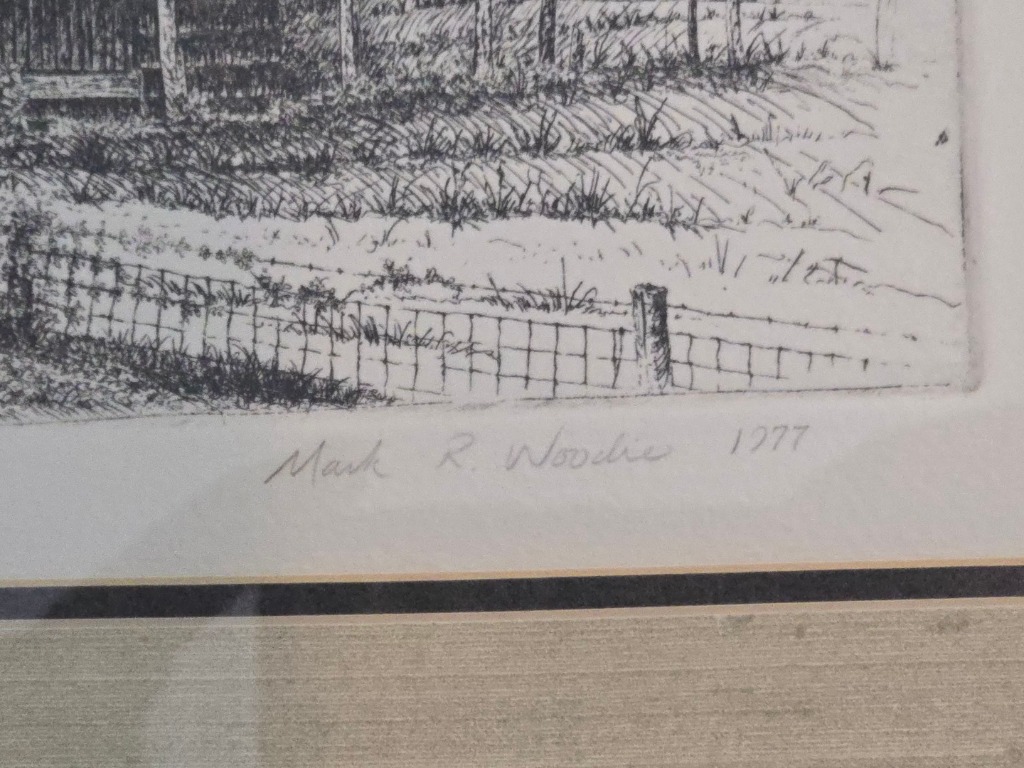 Mark R. Woodie 1977